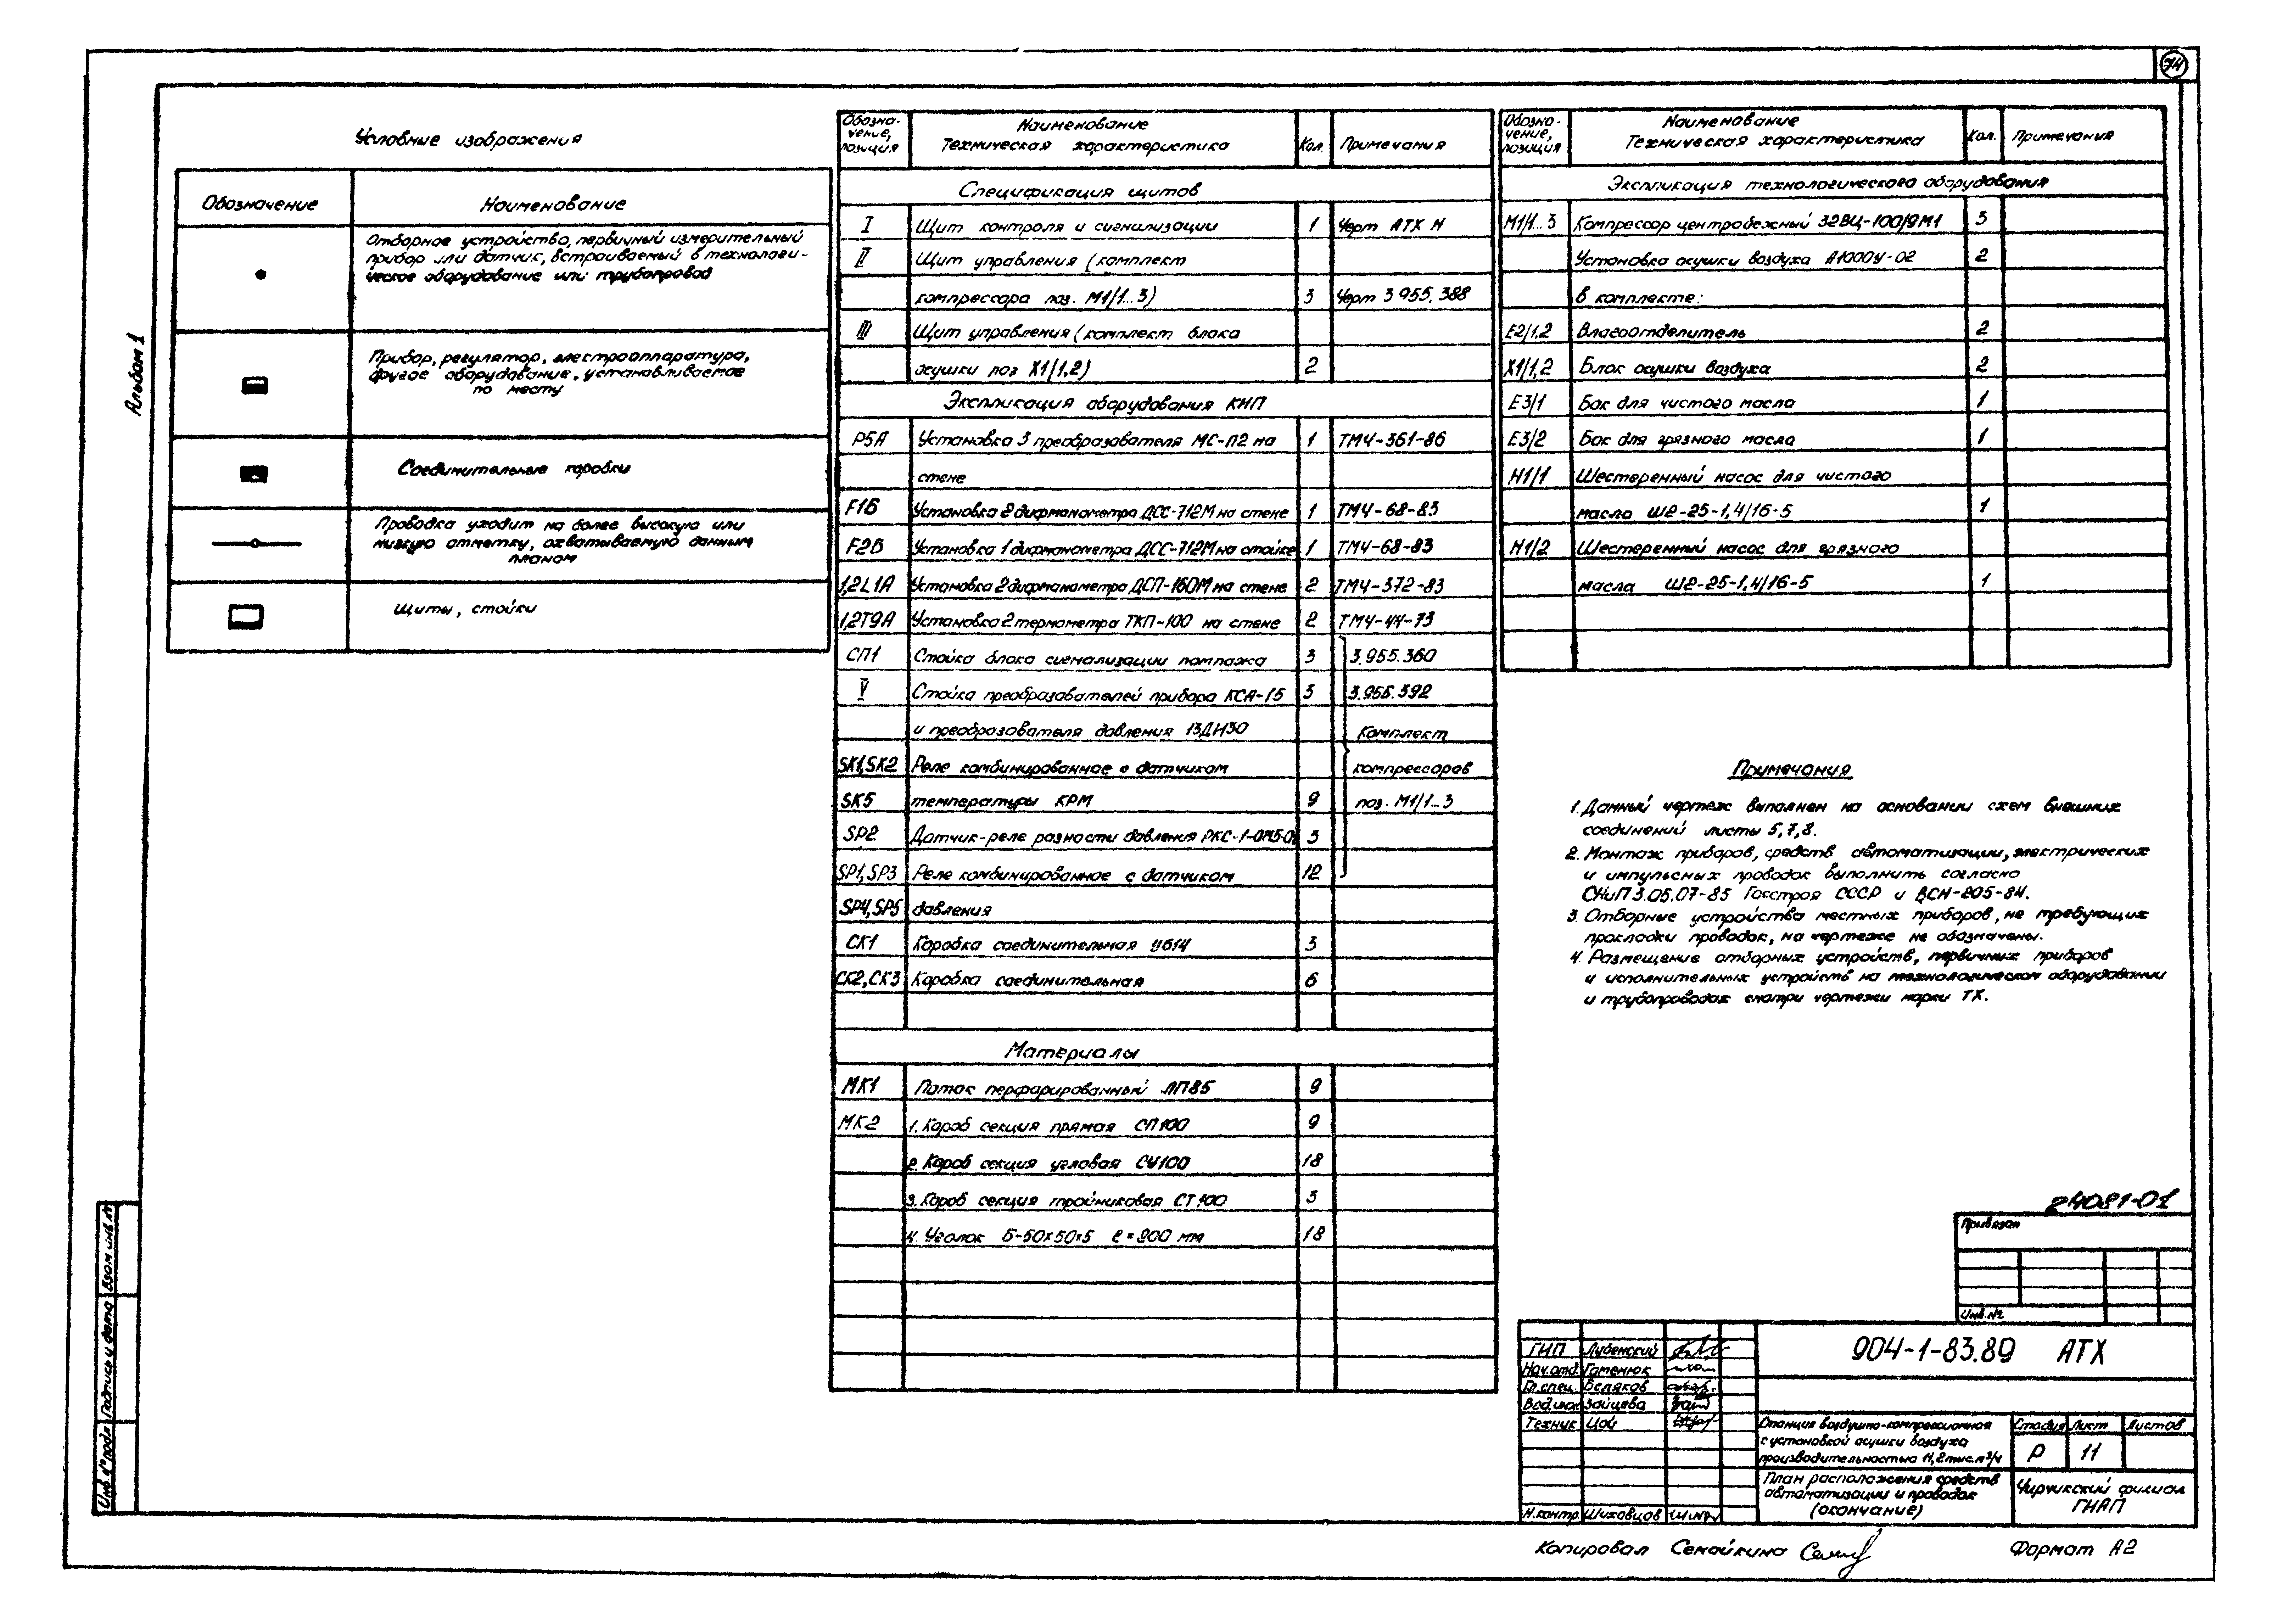 74
Альбом 1
Условные изображения
Обозначение Наименование
Отборное устройство, первичный измерительный
прибор или датчик, встраиваемый в технологи-
ческое оборудование или трубопровод
Прибор, регулятор, электроаппаратура,
другое оборудование, устанавливаемое
по месту
Соединительные коробки
Проводка уходит на более высокую или
низкую отметку, охватываемую данным
планом
Щиты, стойки
Обозна-
чение,
позиция
Наименование
Техническая характеристика
Кол. Примечания
Спецификация щитов
I Щит контроля и сигнализации 1 Черт АТХ Н
II Щит управления (комплект
компрессора поз. М1/1...3) 3 Черт 3 955. 388
III Щит управления (комплект блока
осушки поз Х1/1,2) 2
Экспликация оборудования КИП
P5A Установка 3 преобразователя МС-П2 на 1 ТМ4-361-86
стене
F1Б Установка 2 дифманометра ДСС-712М на стене 1 ТМ4-68-83
F2Б Установка 1 дифманометра ДСС-712М на стойке 1 ТМ4-68-83
1,2L1A Установка 2 дифманометра ДСП-160М на стене 2 ТМ4-372-83
1,2T9A Установка 2 термометра ТКП-100 на стене 2 ТМ4-44-73
СП1 Стойка блока сигнализации помпажа 3 3.955.360
V Стойка преобразователей прибора КСА-15 3 3.955.392
и преобразователя давления 13ДИ30 Комплект
SK1,SK2 Реле комбинированное с датчиком компрессоров
SK5 температуры КРМ 9 поз. М1/1...3
SP2 Датчик-реле разности давления РКС-1-ОМ5-0 3
SP1,SP3 Реле комбинированное с датчиком 12
SP4,SP5 давления
СК1 Коробка соединительная У614 3
СК2,СК3 Коробка соединительная 6
Материалы
МК1 Лоток перфорированный ЛП85 9
МК2 1. Короб секция прямая СП100 9
2. Короб секция угловая СУ100 18
3. Короб секция тройниковая СТ100 3
4. Уголок Б-50х50х5 ℓ=200 мм 18
Обозна-
чение,
позиция
Наименование
Техническая характеристика
Кол. Примечания
Экспликация технологического оборудования
М1/1...3 Компрессор центробежный 32ВЦ-100/9М1 3
Установка осушки воздуха А1000У-02 2
в комплекте:
Е2/1,2 Влагоотделитель 2
Х1/1,2 Блок осушки воздуха 2
Е3/1 Бак для чистого масла 1
Е3/2 Бак для грязного масла 1
Н1/1 Шестеренный насос для чистого
масла Ш2-25-1,4/16-5 1
Н1/2 Шестеренный насос для грязного
масла Ш2-25-1,4/16-5 1
Примечания
1. Данный чертеж выполнен на основании схем внешних
соединений листы 5,7,8.
2. Монтаж приборов, средств автоматизации, электрических
и импульсных проводок выполнить согласно
СНиП 3.05.07-85 Госстроя СССР и ВСН-205-84.
3. Отборные устройства местных приборов, не требующих
прокладки проводок, на чертеже не обозначены.
4. Размещение отборных устройств, первичных приборов
и исполнительных устройств на технологическом оборудовании
и трубопроводах смотри чертежи марки ТХ.
24081-01
Привязан
Инв. №
904-1-83.89 АТХ
ГИП Лубенский
Нач.отд. Гаменюк
Гл.спец. Беляков
Вед.инж Зайцева
Техник Цой
Н.контр Шиховцов
Станция воздушно-компрессионная
с установкой осушки воздуха
производительностью 11,2 тыс. м³/ч
Стадия Лист Листов
Р 11
План расположения средств
автоматизации и проводок
(окончание)
Чирчикский филиал
ГИАП
Копировал Семойкина
Формат А2
Взам. инв. №
Подпись и дата
Инв. № подл